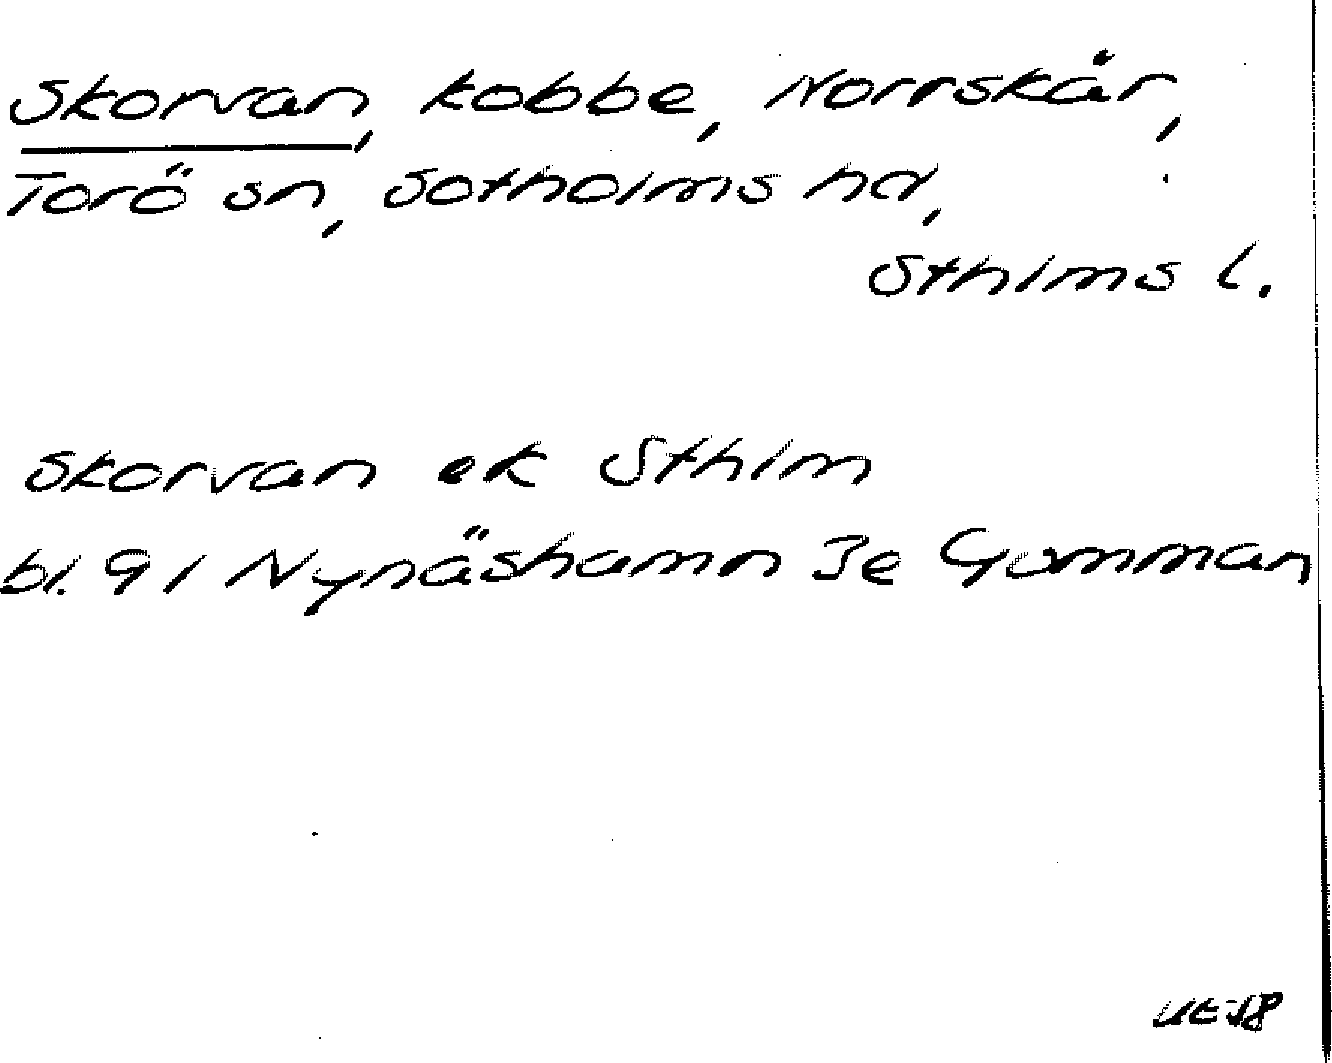 Skorvan, kobbe, Norrskår,
Torö sn, Sotholms hd,
Sthlms l.
Skorvan ek Sthlm
bl. 91 Nynäshamn 3e Gumman